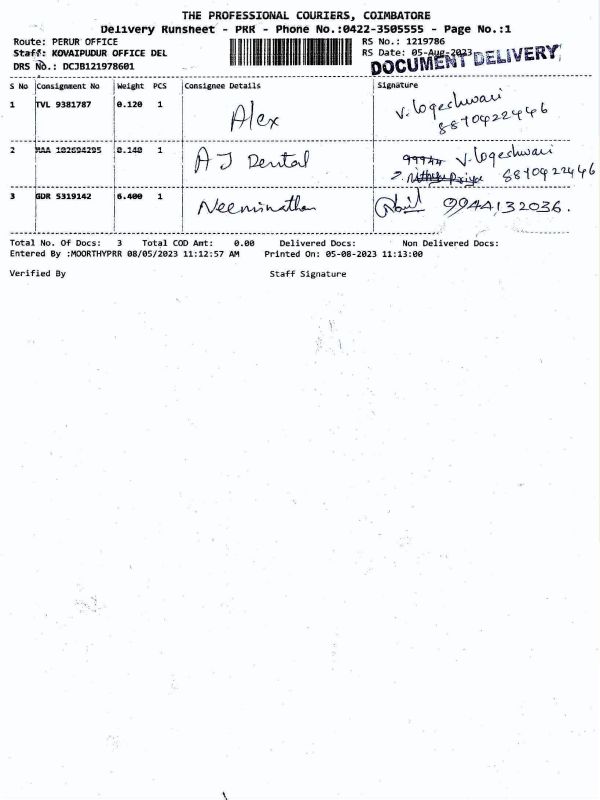 THE PROFESSIONAL COURIERS, COIMBATORE
Delivery Runsheet - PRR - Phone No.:0422-3505555 - Page No.:1
Route: PERUR OFFICE RS No.: 1219786
Staff: KOVAIPUDUR OFFICE DEL RS Date: 05-Aug-2023
DRS No.: DCJB121978601 DOCUMENT DELIVERY
S No Consignment No Weight PCS Consignee Details Signature
1 TVL 9381787 0.120 1 Alex V. Logeshwari
8870922446
2 MAA 102694295 0.140 1 A J Dental V. Logeshwari
8870922446
3 GDR 5319142 6.400 1 Neeminathan 9944132036.
Total No. Of Docs: 3 Total COD Amt: 0.00 Delivered Docs: Non Delivered Docs:
Entered By :MOORTHYPRR 08/05/2023 11:12:57 AM Printed On: 05-08-2023 11:13:00
Verified By Staff Signature